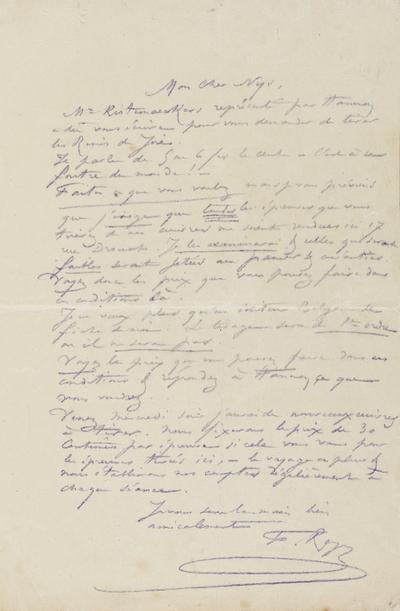 Mon cher Nys,
Mr Kistemaeckers représenté par Hannay
a dû vous écrire pour vous demander de tirer
les
Je parle de 5 ou 6 fr le cent – c'est à
foutre du monde! –
Faites ce que vous voulez mais je vous préviens
que j'exige que toutes les épreuves que vous
tirerez de me soient rendues ici 17
rue Drouot. Je les examinerai & celles qui seront
faibles seront jetées au panier &
Voyez donc les prix que vous pouvez faire dans
ces conditions là.
Je ne veux plus qu'un éditeur Belge se
fiche de moi. Le tirage sera de 1er ordre
ou il ne sera pas.
Voyez le prix que vous pouvez faire dans ces
conditions & répondez à Hannay ce que
vous voudrez.
Venez mercredi soir j'aurai de nouveaux cuivres
à tirer. Nous fixerons le prix de 30
centimes par épreuve si cela vous va pour
les épreuves tirées ici, – le voyage en plus &
nous établirons nos comptes régulièrement à
chaque séance.
Je vous serre la main bien
amicalement
F. Rops